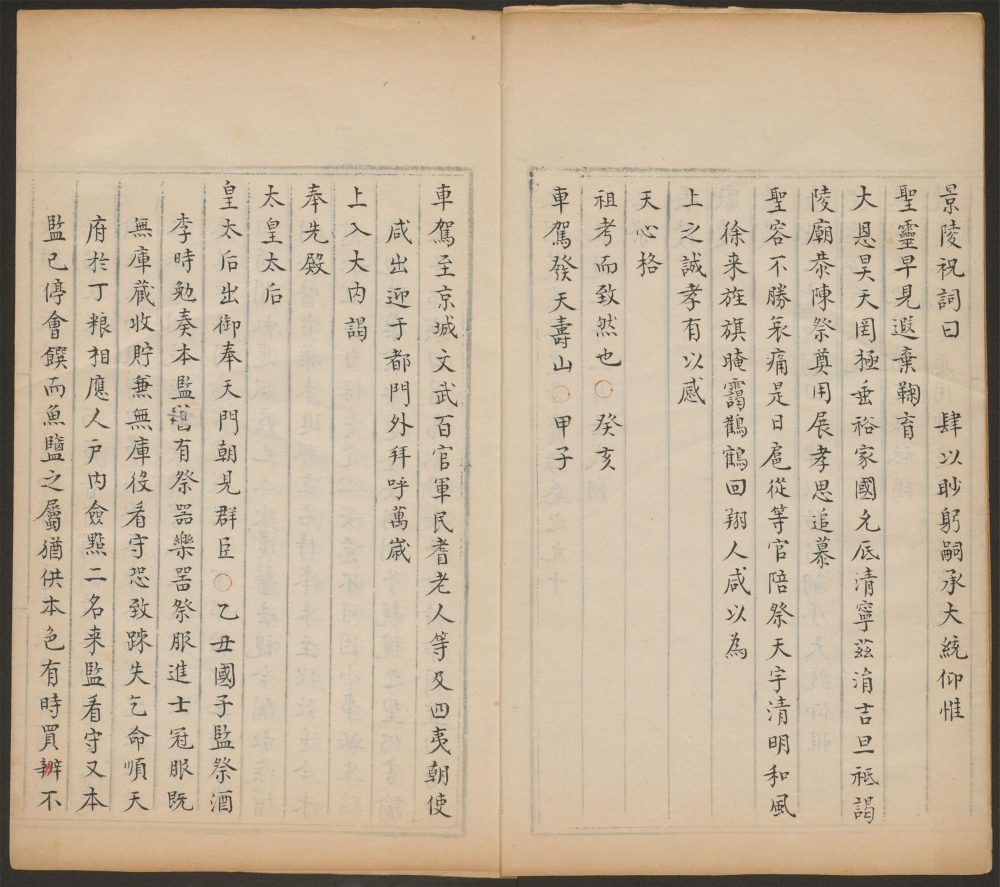 景陵祝詞曰 肆以眇躬嗣承大統仰惟
聖靈早見遐棄鞠育
大恩昊天罔極垂裕家國允底清寧茲涓吉旦祗謁
陵廟恭陳祭奠用展孝思追慕
聖容不勝哀痛是日扈從等官陪祭天宇清明和風
徐来旌旗晻靄鸛鶴回翔人咸以為
上之誠孝有以感
天心格
祖考而致然也○癸亥
車駕發天壽山○甲子
車駕至京城文武百官軍民耆老人等及四夷朝使
咸出迎于都門外拜呼萬歲
上入大內謁
奉先殿
太皇太后
皇太后出御奉天門朝見群臣○乙丑國子監祭酒
李時勉奏本監舊有祭器樂器祭服進士冠服既
無庫藏收貯兼無庫役看守恐致踈失乞命順天
府於丁粮相應人户內僉㸃二名来監看守又本
監已停會饌而魚鹽之屬猶供本色有時買辦不